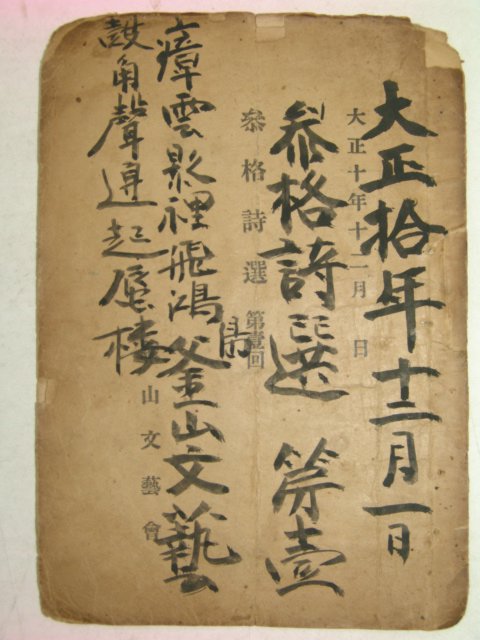 大正拾年十二月一日
大正十年十二月 日
叅格詩選 第壹
叅格詩選 第壹回
瘴雲影裡飛鴻 釜山文藝
山文藝會
鼓角聲邊起蜃楼